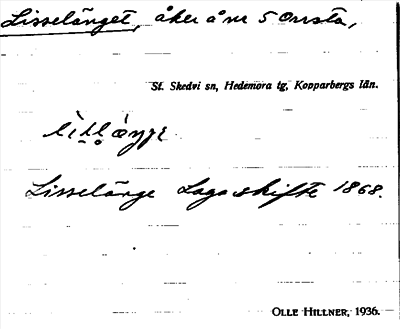 Lisselänget, åker å nr 5 Onsta,
St. Skedvi sn, Hedemora tg, Kopparbergs län.
Lisselänge Laga skifte 1868.
OLLE HILLNER, 1936.